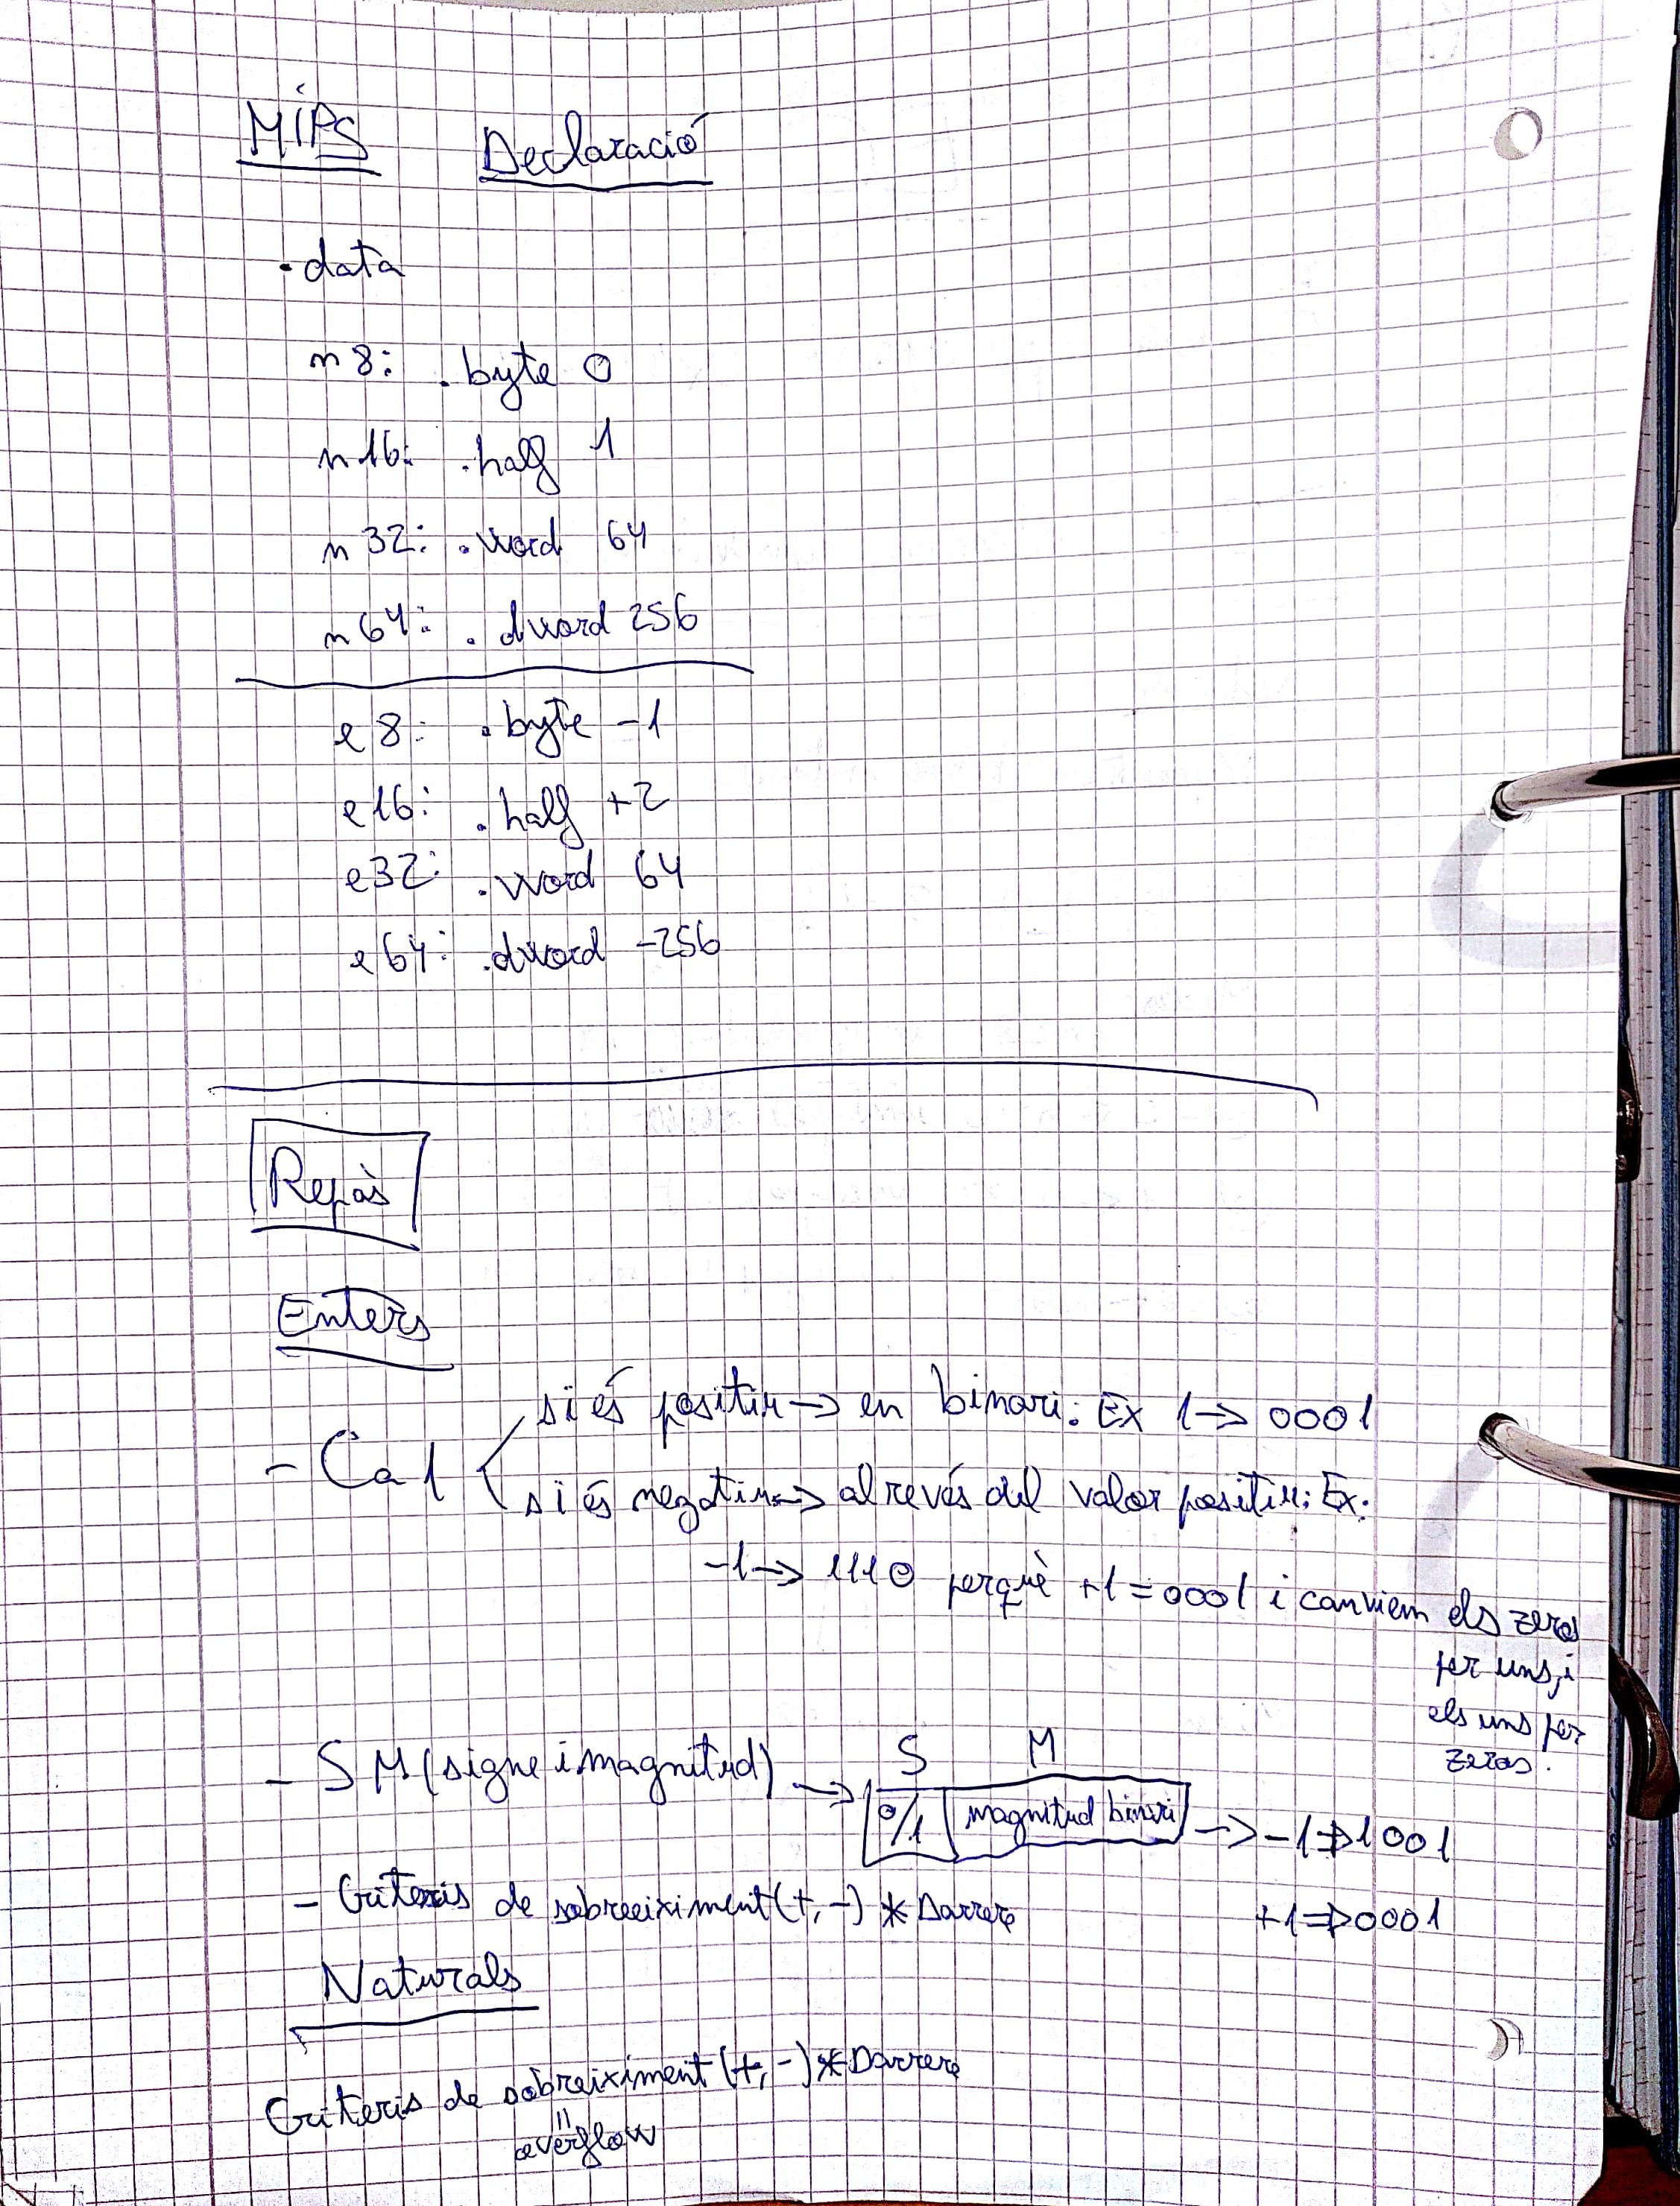 MÍPS Declaració
.data
n8: .byte 0
n16: .half 1
n32: .word 64
n64: .dword 256
e8: .byte -1
e16: .half +2
e32: .word 64
e64: .dword -256
Repàs
Enters
- Ca1 si és positiu -> en binari: Ex 1 -> 0001
si és negatiu -> al revés del valor positiu: Ex:
-1 -> 1110 perquè +1 = 0001 i canviem els zeros
per uns, i
els uns per
zeros.
- SM (signe i magnitud) -> S M
0/1 magnitud binari -> -1 => 1001
+1 => 0001
- Criteris de sobreeiximent (+, -) * Darrere
Naturals
Criteris de sobreiximent (+, -) * Darrere
=
overflow